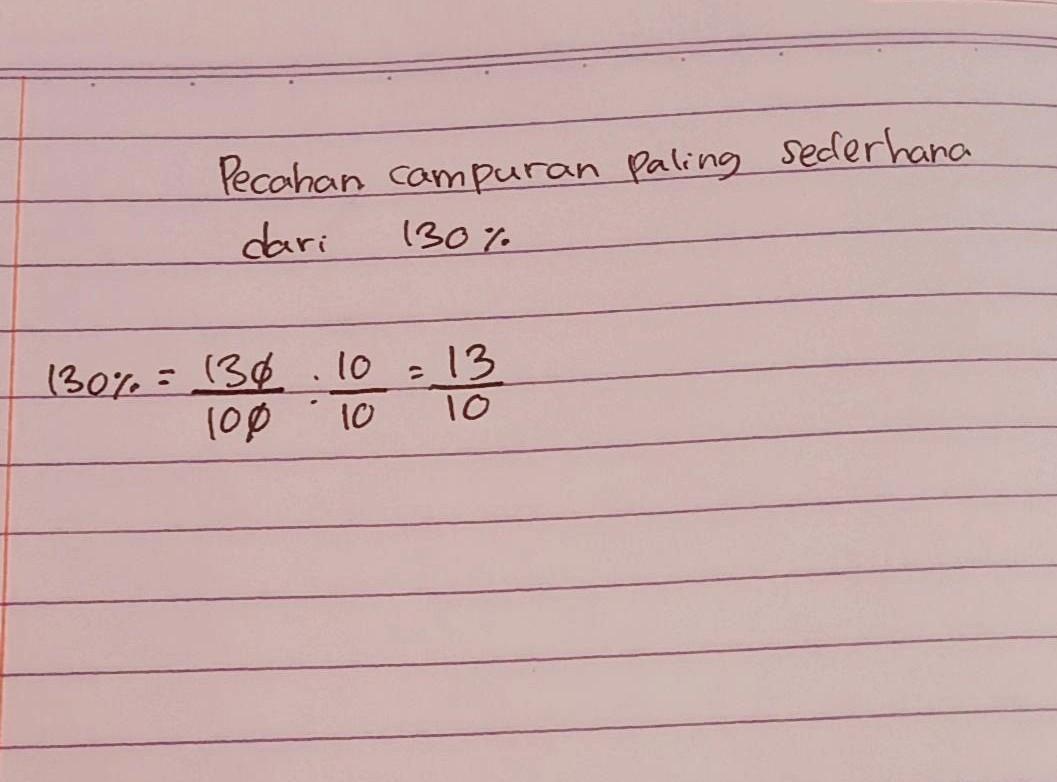 Pecahan campuran paling sederhana
dari 130%
130% = 130/100 : 10/10 = 13/10